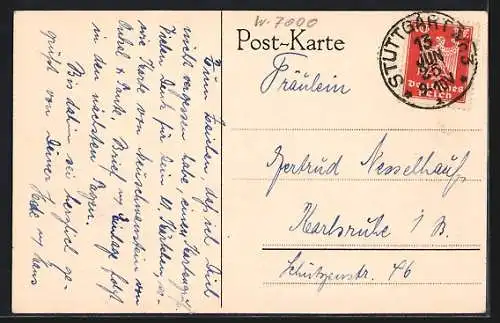 W-7000
Post-Karte
STUTTGART
13
JUN
25
9-10V
Deutsches
Reich
Fräulein
Gertrud Nesselhauf
Karlsruhe i/B.
Schützenstr. 46
Zum Zeichen, daß ich Dich
nicht vergessen habe, einen Kartengruß.
Vielen Dank für Dein
wie Karte von Neuschwanstein von
Onkel & Tante. Brief m/ Einlage folgt
in den nächsten Tagen.
Bis dahin sei herzlich ge-
grüßt von Deiner
Hede m/ Hans